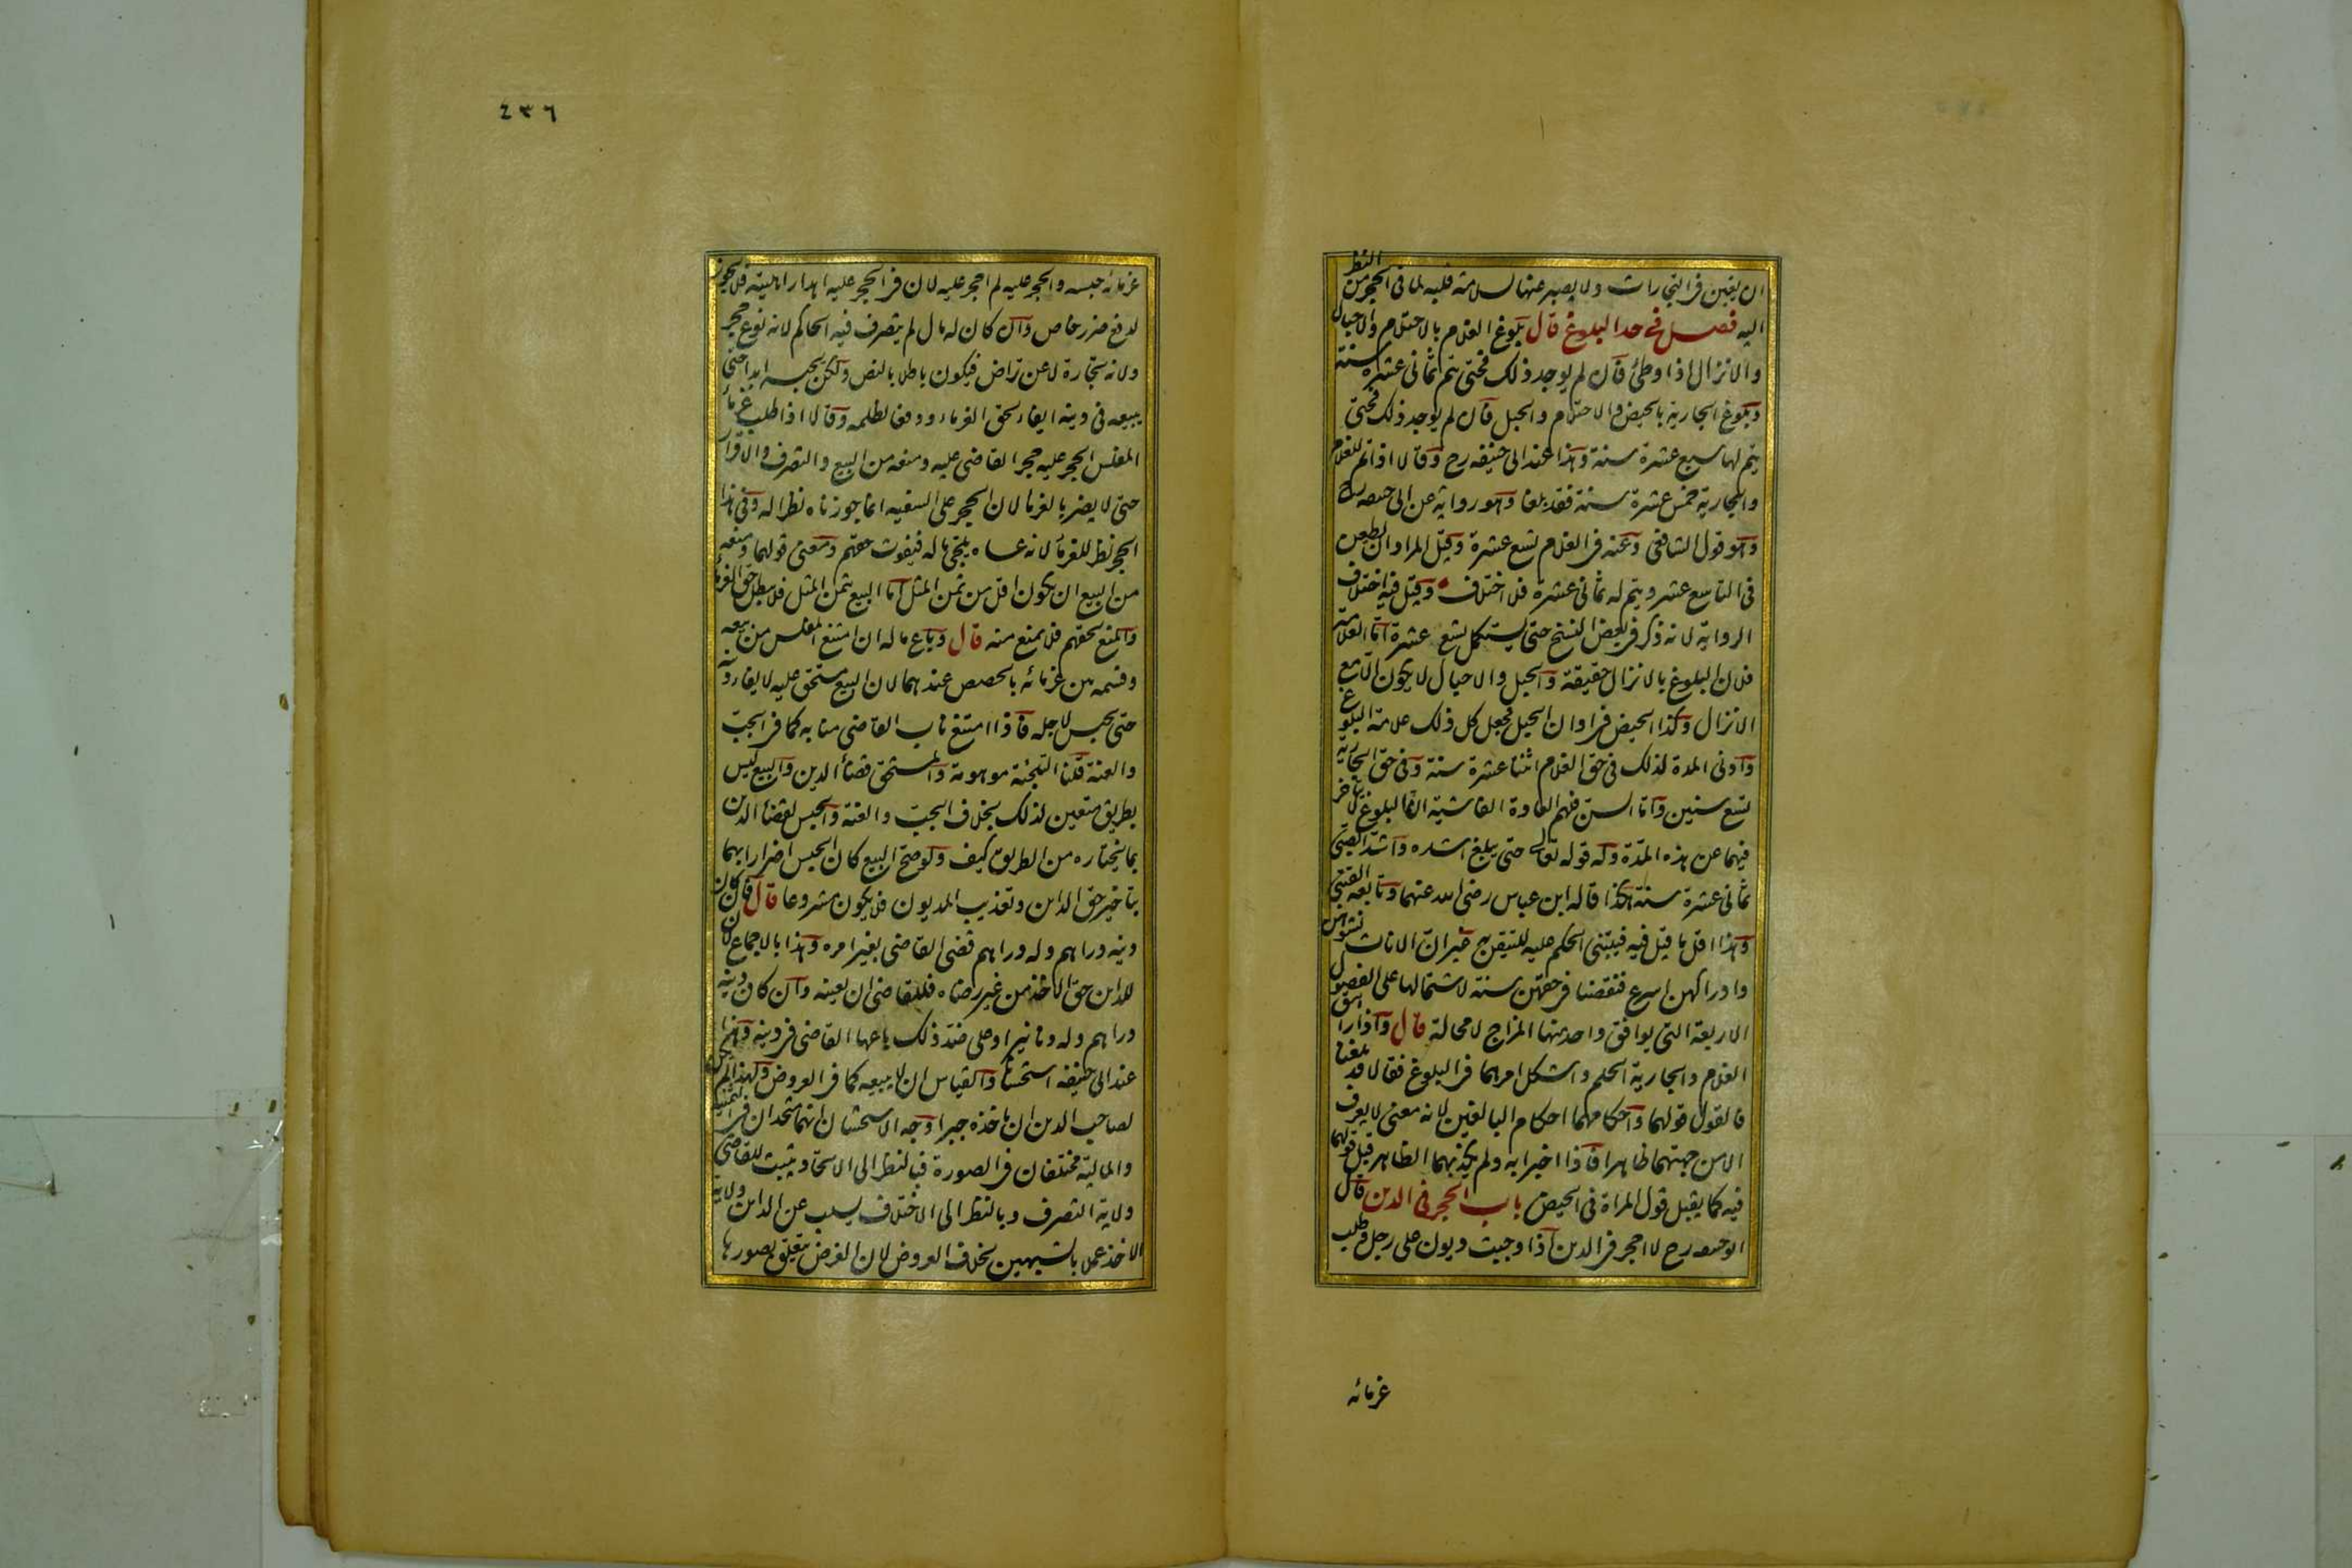 ان يغبن فى التجارات ولا يصبر عنها لسلامة قلبه لما فى الحجر من النظر
اليه فصل فى حد البلوغ قال بلوغ الغلام بالاحتلام والاحبال
والانزال اذا وطئ فان لم يوجد ذلك فحتى يتم ثمانى عشرة سنة
وبلوغ الجارية بالحيض والاحتلام والحبل فان لم يوجد ذلك فحتى
يتم لها سبع عشرة سنة وهذا عند ابى حنيفه رح وقالا اذا تم للغلام
والجارية خمس عشرة سنة فقد بلغا وهو رواية عن ابى حنيفه رح
وهو قول الشافعى وعنه فى الغلام تسع عشرة وقيل المراد ان يطعن
فى التاسع عشر ويتم له ثمانى عشرة فلا اختلاف وقيل فيه اختلاف
الرواية لانه ذكر فى بعض النسخ حتى يستكمل تسع عشرة اما العلامة
فلان البلوغ بالانزال حقيقة والحبل والاحبال لا يكون الا مع
الانزال وكذا الحيض فى اوان الحبل فجعل كل ذلك علامة البلوغ
وادنى المدة لذلك فى حق الغلام اثنا عشرة سنة وفى حق الجارية
تسع سنين واما السن فلهم العادة الفاشية ان البلوغ لا يتاخر
فيهما عن هذه المدة وله قوله تعالى حتى يبلغ اشده واشد الصبى
ثمانى عشرة سنة هكذا قاله ابن عباس رضى الله عنهما وتابعه القتبى
وهذا اقل ما قيل فيه فيبتنى الحكم عليه للتيقن به غير ان الاناث نشوهن
وادراكهن اسرع فنقصنا فى حقهن سنة لاشتمالها على الفصول
الاربعة التى يوافق واحد منها المزاج لا محالة قال واذا راهق
الغلام والجارية الحلم واشكل امرهما فى البلوغ فقالا قد بلغنا
فالقول قولهما واحكامهما احكام البالغين لانه معنى لا يعرف
الا من جهتهما ظاهرا فاذا اخبرا به ولم يكذبهما الظاهر قبل قولهما
فيه كما يقبل قول المراة فى الحيض باب الحجر فى الدين قال
ابو حنيفه رح لا احجر فى الدين اذا وجبت ديون على رجل وطلب
غرمائه
٤٣٦
غرمائه حبسه والحجر عليه لم احجر عليه لان فى الحجر عليه اهدار اهليته فلا يجوز
لدفع ضرر خاص وان كان له مال لم يتصرف فيه الحاكم لانه نوع حجر
ولانه تجارة لا عن تراض فيكون باطلا بالنص ولكن يحبسه ابدا حتى
يبيعه فى دينه ايفاء لحق الغرماء ودفعا لظلمه وقالا اذا طلب غرماء
المفلس الحجر عليه حجر القاضى عليه ومنعه من البيع والتصرف والاقرار
حتى لا يضر بالغرما لان الحجر على السفيه انما جوزناه نظرا له وفى هذا
الحجر نظر للغرما لانه عساه يلجئ ماله فيفوت حقهم ومعنى قولهما ومنعه
من البيع ان يكون اقل من ثمن المثل اما البيع بثمن المثل فلا يبطل حق الغرما
والمنع لحقهم فلا يمنع منه قال وباع ماله ان امتنع المفلس من بيعه
وقسمه بين غرمائه بالحصص عندهما لان البيع مستحق عليه لايفاء دينه
حتى يحبس لاجله فاذا امتنع ناب القاضى منابه كما فى الجب
والعنة قلنا التلجئة موهومة والمستحق قضا الدين والبيع ليس
بطريق متعين لذلك بخلاف الجب والعنة والحبس لقضا الدين
بما يختاره من الطريق كيف ولو صح البيع كان الحبس اضرارا بهما
بتاخير حق الداين وتعذيب المديون فلا يكون مشروعا قال فان كان
دينه دراهم وله دراهم قضى القاضى بغير امره وهذا بالاجماع لان
للداين حق الاخذ من غير رضاه فللقاضى ان يعينه وان كان دينه
دراهم وله دنانير او على ضد ذلك باعها القاضى فى دينه وهذا
عند ابى حنيفه استحسانا والقياس ان لا يبيعه كما فى العروض ولهذا لم يكن
لصاحب الدين ان ياخذه جبرا وجه الاستحسان انهما متحدان فى الثمنية
والمالية مختلفان فى الصورة فبالنظر الى الاتحاد يثبت للقاضى
ولاية التصرف وبالنظر الى الاختلاف يسلب عن الداين ولاية
الاخذ عملا بالشبهين بخلاف العروض لان الغرض يتعلق بصورها